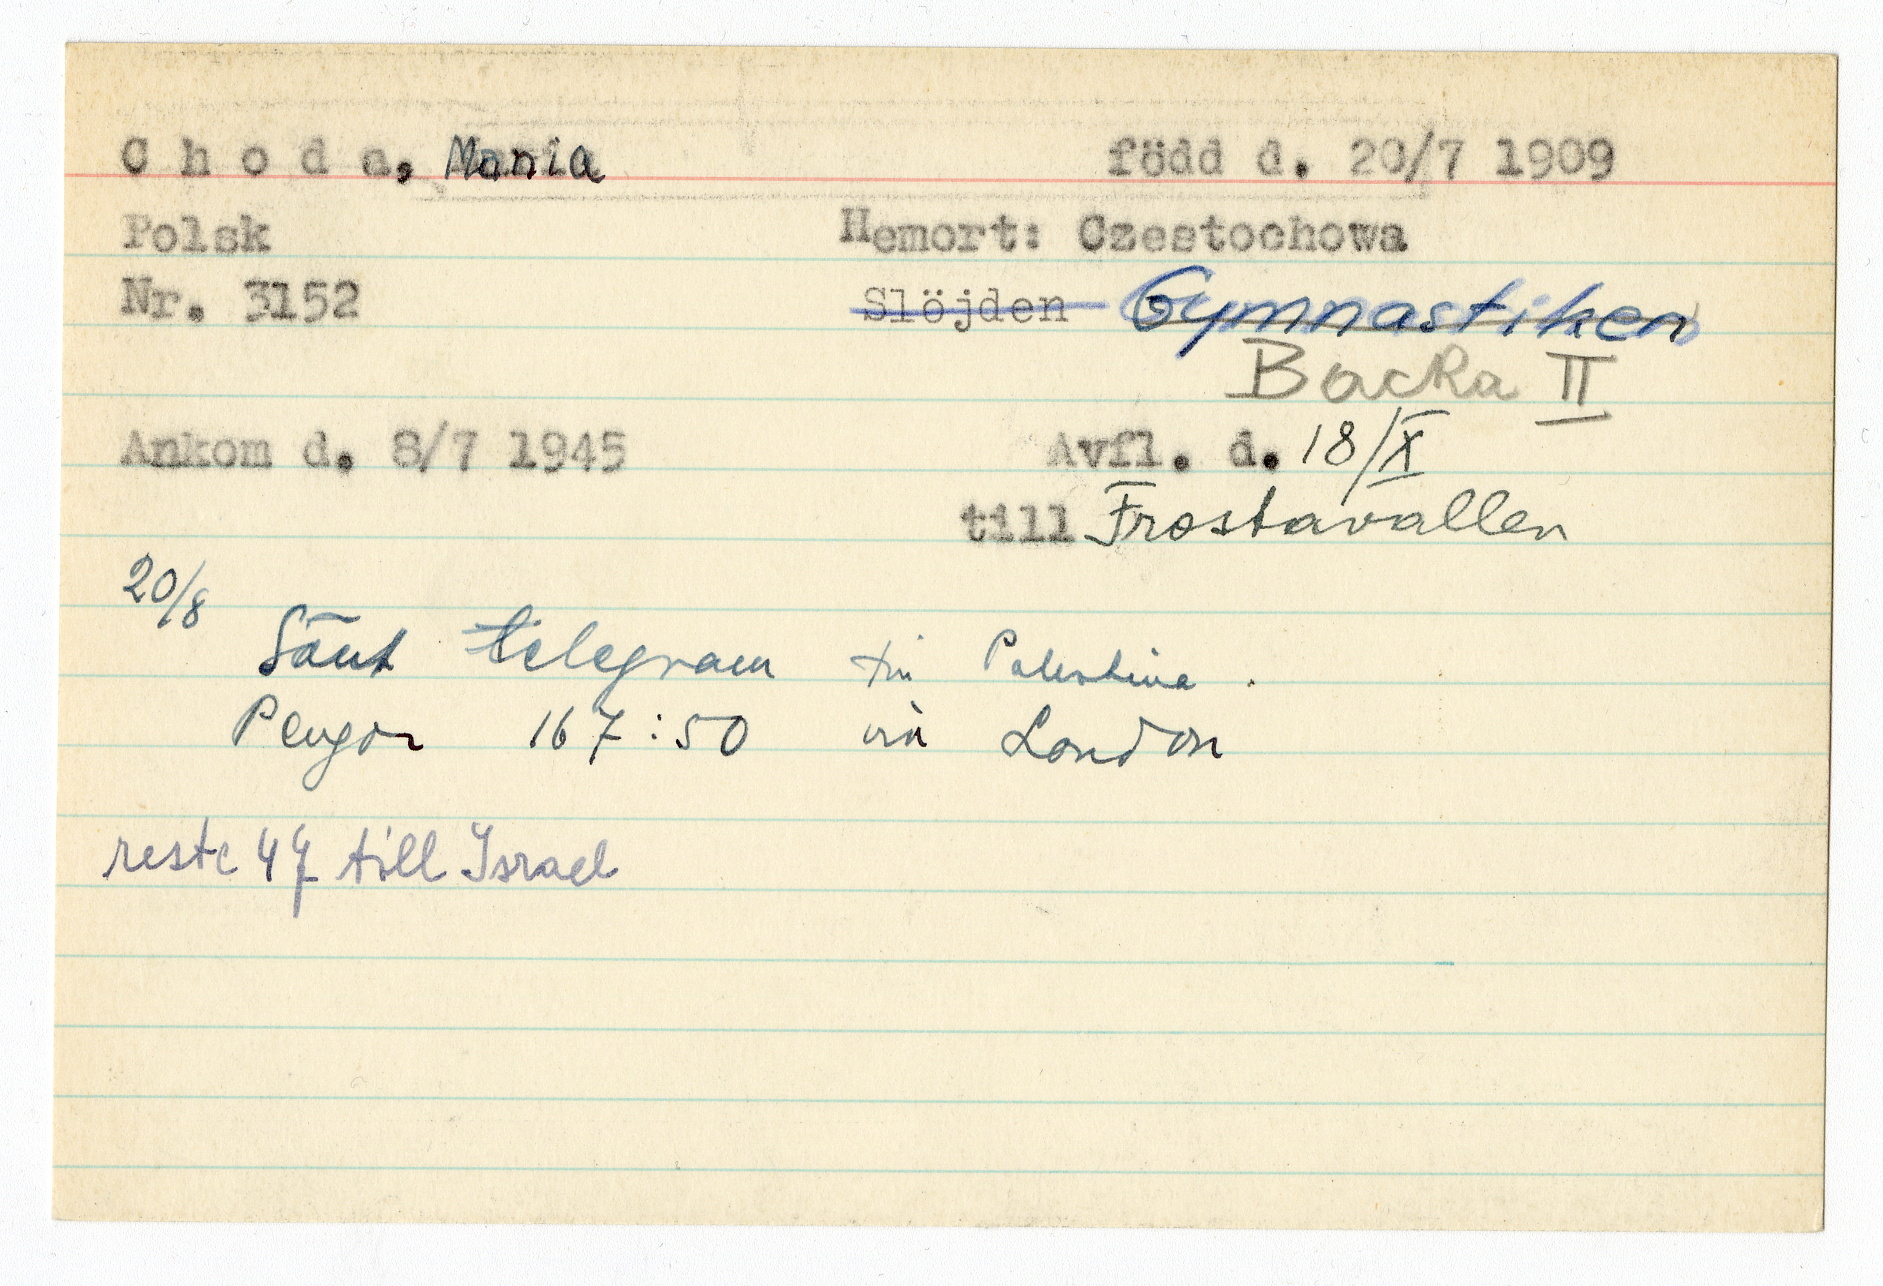 C h o d a, Mania född d. 20/7 1909
Polsk Hemort: Czestochowa
Nr. 3152 Slöjden Gymnastiken
Backa II
Ankom d. 8/7 1945 Avfl. d. 18/X
till Frostavallen
20/8
Sänt telegram till Palestina.
Pengar 167:50 via London
reste 47 till Israel